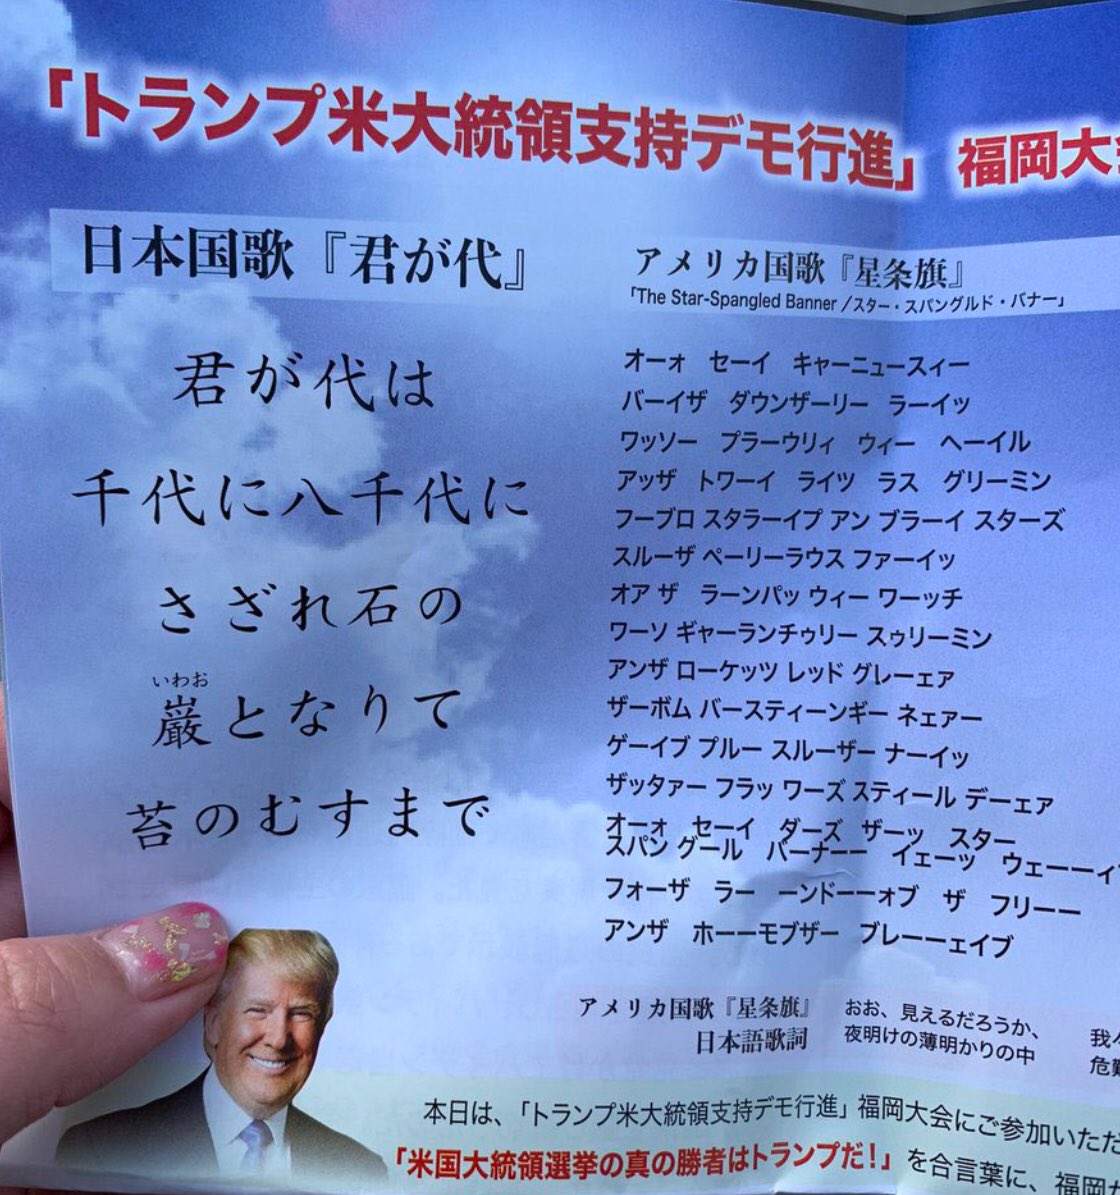 「トランプ米大統領支持デモ行進」 福岡大会
日本国歌『君が代』
君が代は
千代に八千代に
さざれ石の
いわお
巌となりて
苔のむすまで
アメリカ国歌『星条旗』
「The Star-Spangled Banner /スター・スパングルド・バナー」
オーォ セーイ キャーニュースィー
バーイザ ダウンザーリー ラーイッ
ワッソー プラーウリィ ウィー ヘーイル
アッザ トワーイ ライツ ラス グリーミン
フーブロ スタラーイプ アン ブラーイ スターズ
スルーザ ペーリーラウス ファーイッ
オア ザ ラーンパッ ウィー ワーッチ
ワーソ ギャーランチゥリー スゥリーミン
アンザ ローケッツ レッド グレーェア
ザーボム バースティーンギー ネェアー
ゲーイブ プルー スルーザー ナーイッ
ザッタァー フラッ ワーズ スティール デーェア
オーォ セーイ ダーズ ザーッ スター
スパン グール バーナーー イェーッ ウェーーィ
フォーザ ラー ーンドーーォブ ザ フリーー
アンザ ホーーモブザー ブレーーェイブ
アメリカ国歌『星条旗』
日本語歌詞
おお、見えるだろうか、
夜明けの薄明かりの中
我々
危難
本日は、「トランプ米大統領支持デモ行進」福岡大会にご参加いただ
「米国大統領選挙の真の勝者はトランプだ!」を合言葉に、福岡